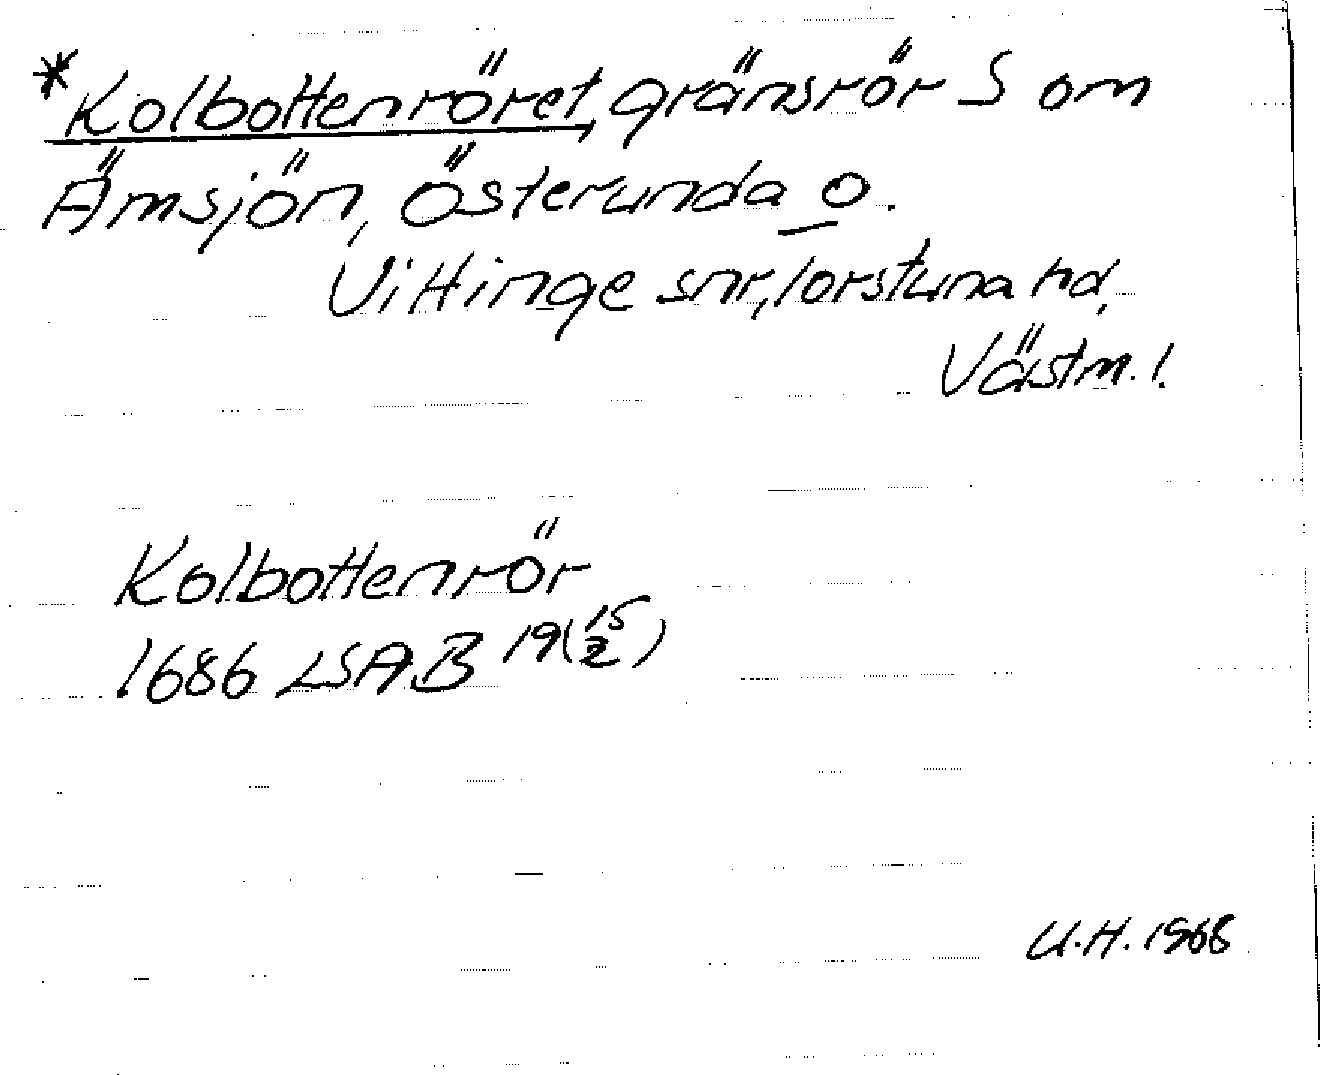 *Kolbottenröret, gränsrör S om
Ämsjön, Österunda o.
Vittinge snr, Torstuna hd,
Västm. l.
Kolbottenrör
1686 LSA B 19(15/2)
U.H. 1968